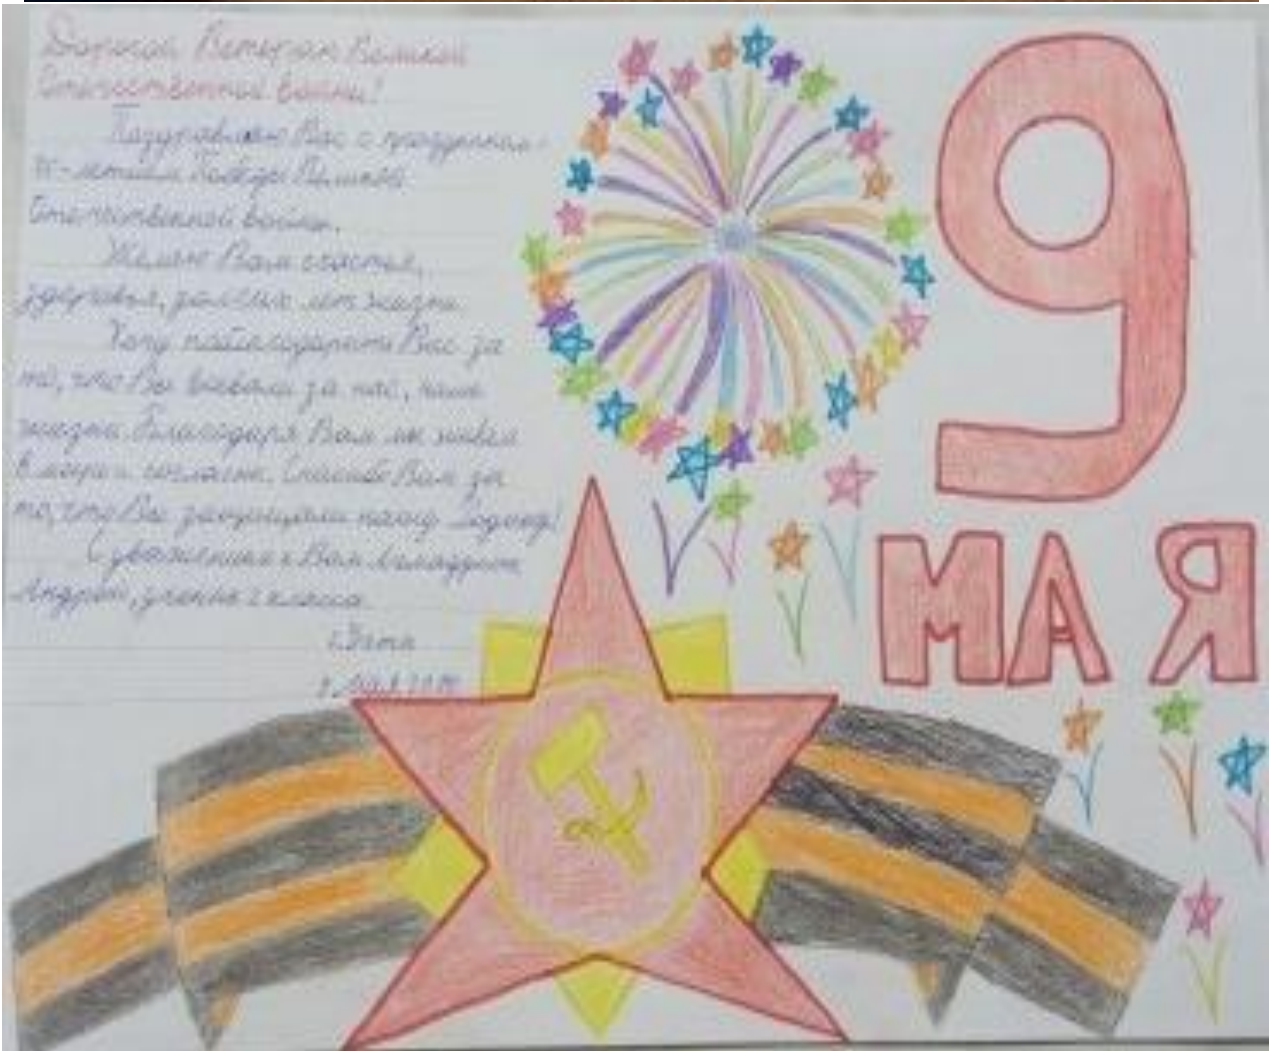 Дорогой Ветеран Великой
Отечественной войны!
Поздравляю Вас с праздником -
-летием Победы Великой
Отечественной войны.
Желаю Вам счастья,
здоровья, долгих лет жизни.
Хочу поблагодарить Вас за
то, что Вы воевали за нас, наши
жизни. Благодаря Вам мы живем
в мире и согласии. Спасибо Вам за
то, что Вы защищали нашу Родину!
С уважением к Вам
Андрей, ученик 2 класса
9
МАЯ